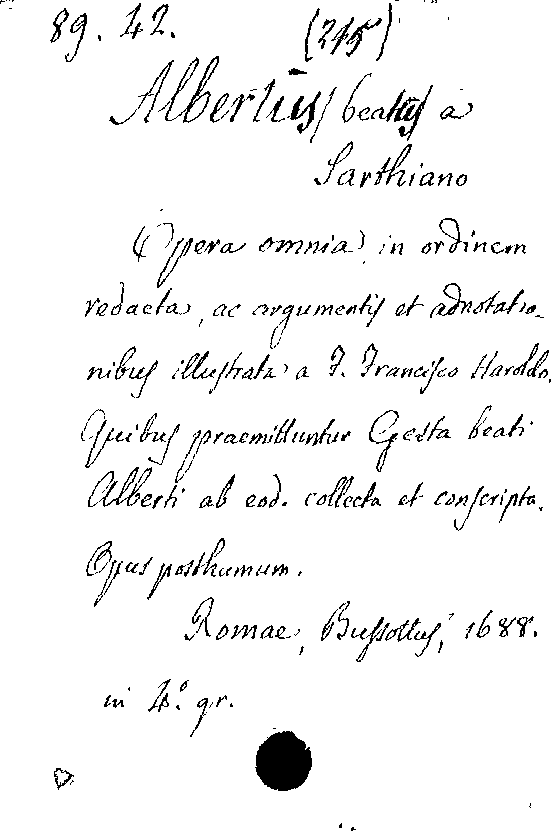 89. 42. (215)
Albertus, beatus a
Sarthiano
Opera omnia, in ordinem
redacta, ac argumentis et adnotatio-
nibus illustrata a F. Francisco Haroldo.
Quibus praemittuntur Gesta beati
Alberti ab eod. collecta et conscripta.
Opus posthumum.
Romae, Bussottus, 1688.
in 4.° gr.